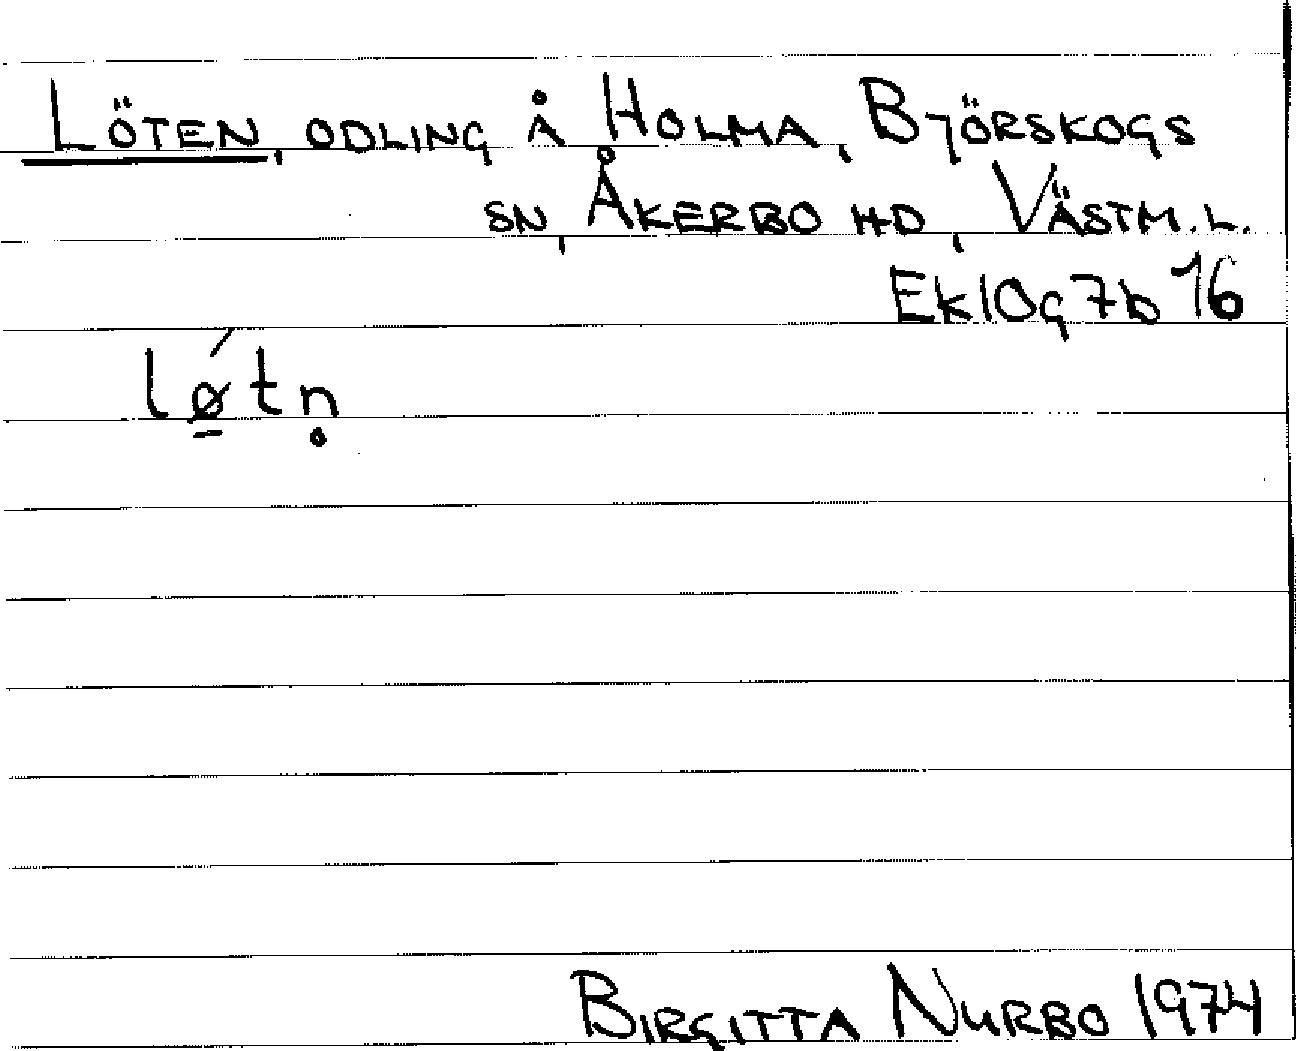 LÖTEN, ODLING Å HOLMA, BJÖRSKOGS
SN, ÅKERBO HD, VÄSTM. L.
Ek10g7b 16
lǿ̱tn̥
BIRGITTA NURBO 1974